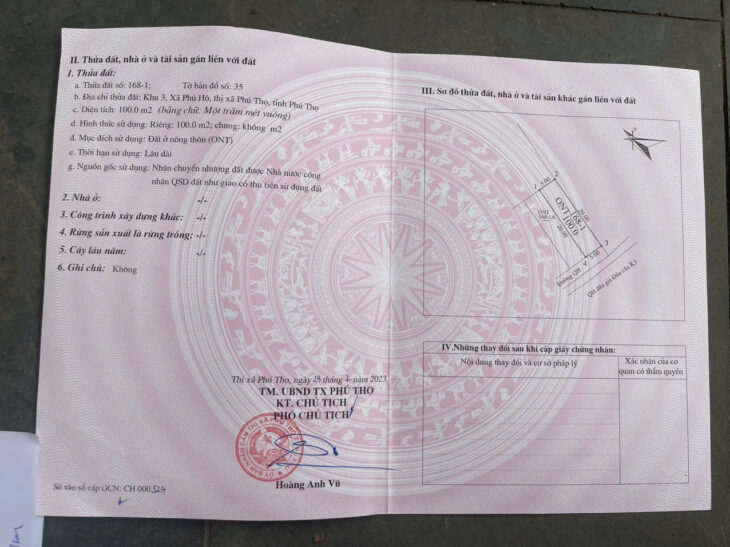 II. Thửa đất, nhà ở và tài sản gắn liền với đất
1. Thửa đất:
a. Thửa đất số: 168-1; Tờ bản đồ số: 35
b. Địa chỉ thửa đất: Khu 3, Xã Phú Hộ, thị xã Phú Thọ, tỉnh Phú Thọ
c. Diện tích: 100.0 m2 (bằng chữ: Một trăm mét vuông)
d. Hình thức sử dụng: Riêng: 100.0 m2; chung: không m2
đ. Mục đích sử dụng: Đất ở nông thôn (ONT)
e. Thời hạn sử dụng: Lâu dài
g. Nguồn gốc sử dụng: Nhận chuyển nhượng đất được Nhà nước công
nhận QSD đất như giao có thu tiền sử dụng đất
2. Nhà ở: -/-
3. Công trình xây dựng khác: -/-
4. Rừng sản xuất là rừng trồng: -/-
5. Cây lâu năm: -/-
6. Ghi chú: Không
Thị xã Phú Thọ, ngày tháng năm 2023
TM. UBND TX PHÚ THỌ
KT. CHỦ TỊCH
PHÓ CHỦ TỊCH
Hoàng Anh Vũ
Số vào sổ cấp GCN: CH 000524
III. Sơ đồ thửa đất, nhà ở và tài sản khác gắn liền với đất
1 5.00 2
ONT
168-1A
20.00
ONT 168-1
100.0
20.00
4 5.00 3
Đường QH
QH đấu giá Đầu cầu K3
IV.Những thay đổi sau khi cấp giấy chứng nhận:
Nội dung thay đổi và cơ sở pháp lý
Xác nhận của cơ
quan có thẩm quyền